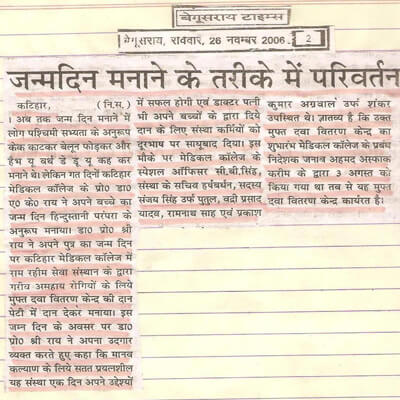 बेगूसराय टाइम्स
बेगूसराय, राववार, 26 नवम्बर 2006 . 2
जन्मदिन मनाने के तरीके में परिवर्तन
कटिहार, (नि.स.)
। अब तक जन्म दिन मनाने में
लोग पश्चिमी सभ्यता के अनुरूप
केक काटकर बेलून फोड़कर और
हैभ यू बर्थ डे टू यू कह कर
मनाते थे। लेकिन गत दिनों कटिहार
मेडिकल कॉलेज के प्रो० डा०
ए० के० राय ने अपने बच्चे का
जन्म दिन हिन्दुस्तानी परंपरा के
अनुरूप मनाया। डा० प्रो० श्री
राय ने अपने पुत्र का जन्म दिन
पर कटिहार मेडिकल कॉलेज में
राम रहीम सेवा संस्थान के द्वारा
गरीब असहाय रोगियों के लिये
मुफ्त दवा वितरण केन्द्र को दान
पेटी में दान देकर मनाया। इस
जम्न दिन के अवसर पर डा०
प्रो० श्री राय ने अपना उदगार
व्यक्त करते हुए कहा कि मानव
कल्याण के लिये सतत प्रयलशील
यह संस्था एक दिन अपने उद्देश्यों
में सफल होगी एवं डाक्टर पत्नी
भी अपने बच्चों के द्वारा दिये
दान के लिए संस्था कर्मियों को
दूरभाष पर साधुबाद दिया। इस
मौके पर मेडिकल कॉलेज के
स्पेशल ऑफिसर सी.बी.सिंह,
संस्था के सचिव हर्षबर्धन, सदस्य
संजय सिंह उर्फ पुतुल, वद्री प्रसाद
यादव, रामनाथ साह एवं प्रकाश
कुमार अग्रवाल उर्फ शंकर
उपस्थित थे। ज्ञातव्य है कि उक्त
मुफ्त दवा वितरण केन्द्र का
शुभारंभ मेडिकल कॉलेज के प्रबंध
निदेशक जनाब अहमद अस्फाक
करीम के द्वारा 3 अगस्त को
किया गया था तब से यह मुफ्त
दवा वितरण केन्द्र कार्यरत है।